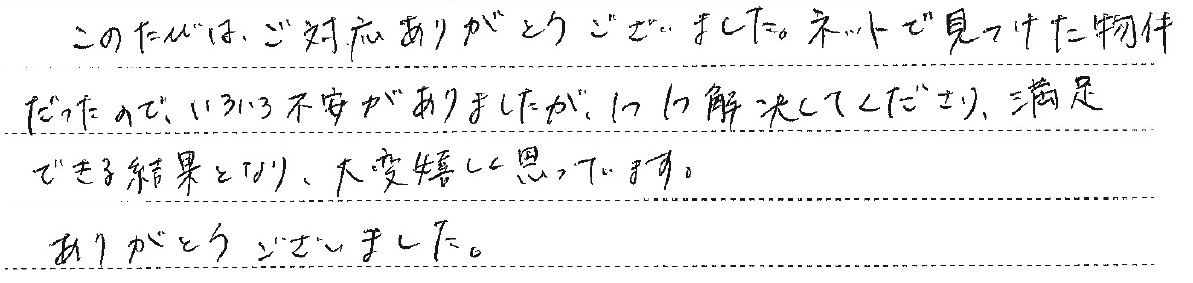 このたびは、ご対応ありがとうございました。ネットで見つけた物件
だったので、いろいろ不安がありましたが、1つ1つ解決してくださり、満足
できる結果となり、大変嬉しく思っています。
ありがとうございました。